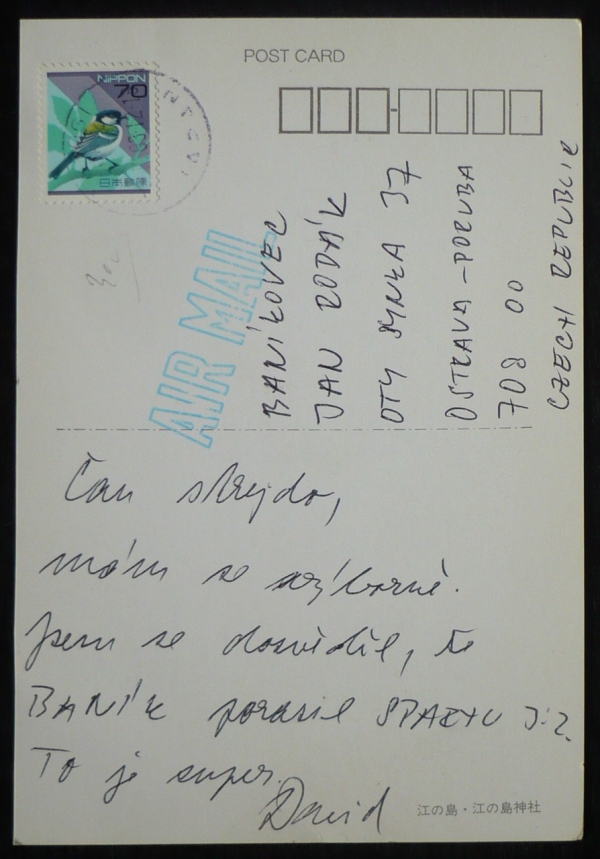 POST CARD
NIPPON
70
日本郵便
AIR MAIL
BANÍKOVEC
JAN RODÁK
OTY SYNKA 37
OSTRAVA-PORUBA
708 00
CZECH REPUBLIC
Čau strejdo,
mám se výborně.
Jsem se dosvěděl, že
BANÍK porazil SPARTU 3:2.
To je super.
David
江の島・江の島神社